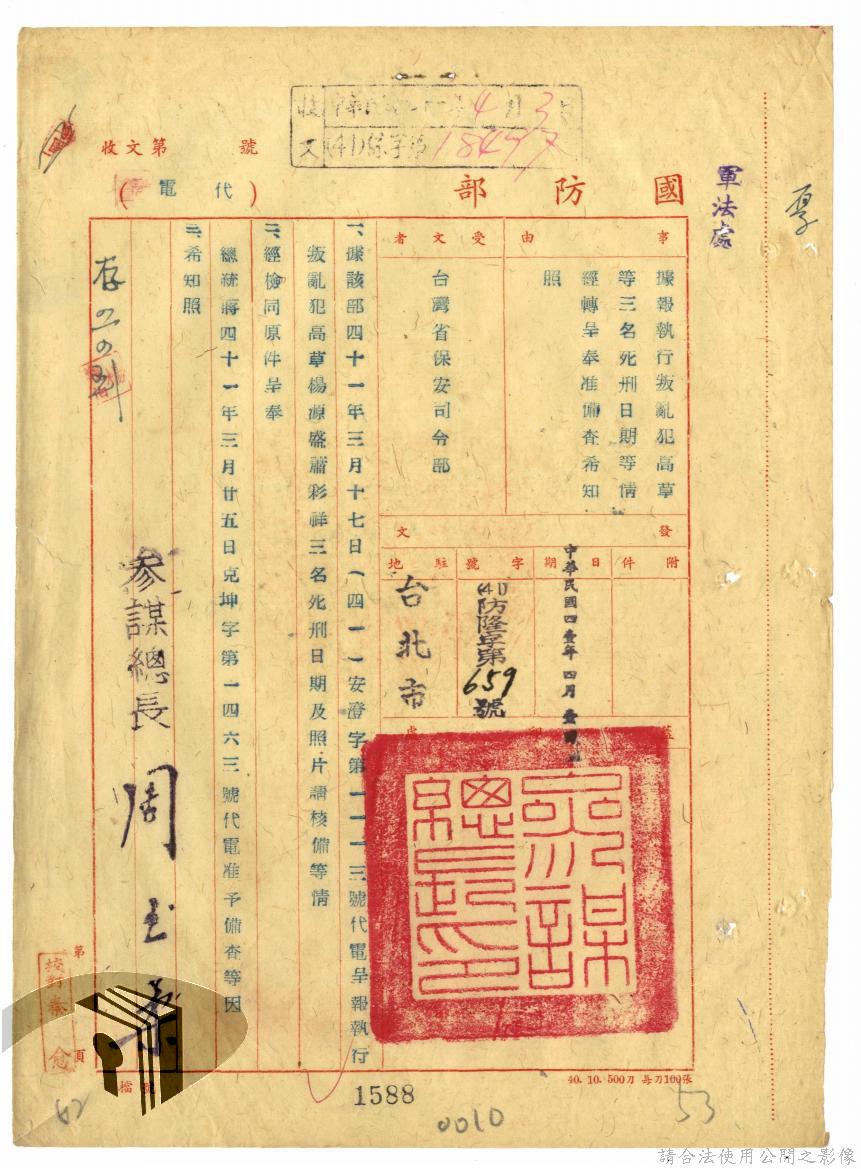 國防部
(代電)
收文第 號
軍法處
4月3
18497
事由
據報執行叛亂犯高草
等三名死刑日期等情
經轉呈奉准備查希知
照
受文者
台灣省保安司令部
發文
附件
日期
中華民國四壹年四月壹
字號
(41)防隆字第659號
駐地
台北市
一、據該部四十一年三月十七日(四一)安澄字第一一一三號代電呈報執行
叛亂犯高草楊源盛蕭彩祥三名死刑日期及照片請核備等情
二、經檢同原件呈奉
總統蔣四十一年三月廿五日克坤字第一四六三號代電准予備查等因
三、希知照
參謀總長 周至柔
參謀總長印
存
第 頁
校對秦 愈
檔號
40.10.500刀 每刀100張
1588
0010
53
62
請合法使用公開之影像